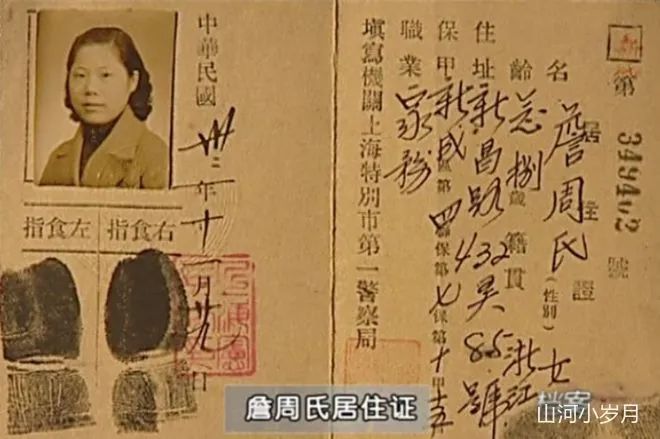 第 349402 號
居住證
名 詹周氏 (性別) 女
齡 捌歲 籍貫 浙江
住址 新昌路432弄85號
保甲 新成區第四聯保第七保第十甲
職業 家務
填寫機關上海特別市第一警察局
中華民國卅二年十一月廿九日
右食指
左食指
詹周氏居住证
档案
山河小岁月